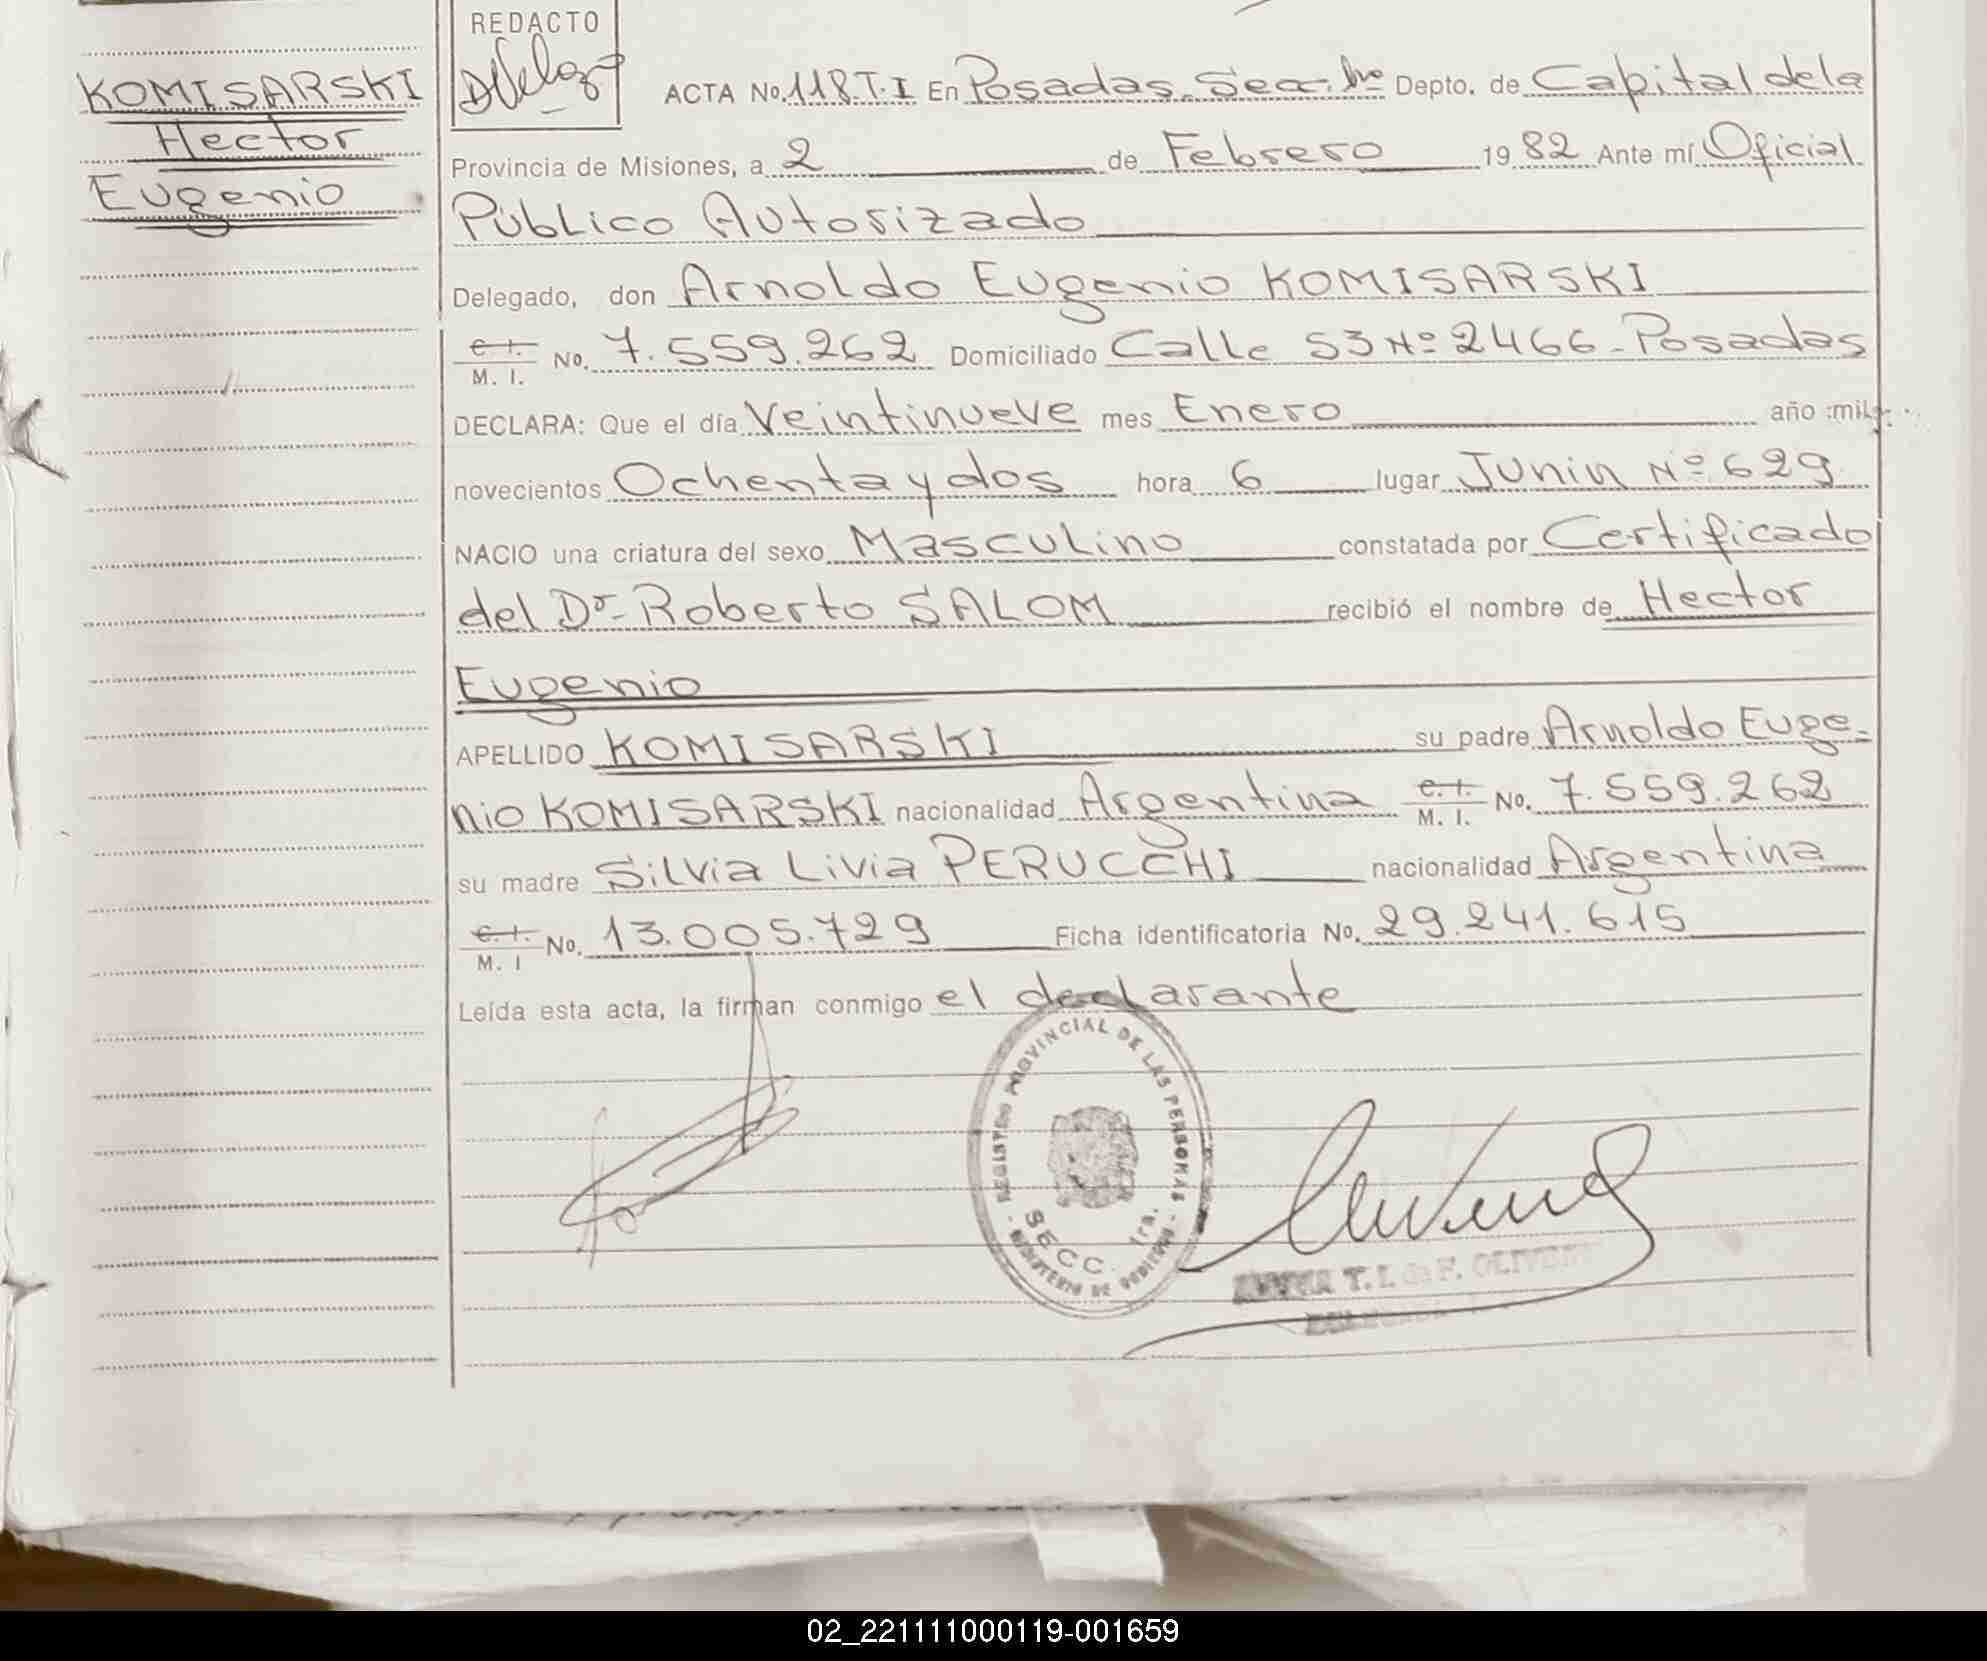 KOMISARSKI
Hector
Eugenio
REDACTO
ACTA No. 118.T.I En Posadas Sec. 1ra Depto. de Capital de la
Provincia de Misiones, a 2 de Febrero 1982 Ante mí Oficial
Público Autorizado
Delegado, don Arnoldo Eugenio KOMISARSKI
C.I. M. I. No. 7.559.262 Domiciliado Calle 53 Nº 2466 - Posadas
DECLARA: Que el día Veintinueve mes Enero año mil
novecientos Ochenta y dos hora 6 lugar Junin Nº 629
NACIO una criatura del sexo Masculino constatada por Certificado
del Dr. Roberto SALOM recibió el nombre de Hector
Eugenio
APELLIDO KOMISARSKI su padre Arnoldo Euge-
nio KOMISARSKI nacionalidad Argentina C.I. M. I. No. 7.559.262
su madre Silvia Livia PERUCCHI nacionalidad Argentina
C.I. M. I No. 13.005.729 Ficha identificatoria No. 29.241.615
Leída esta acta, la firman conmigo el declarante
REGISTRO PROVINCIAL DE LAS PERSONAS
SECC. 1ra.
MINISTERIO DE GOBIERNO
T. I. de F. OLIVERI
02_221111000119-001659